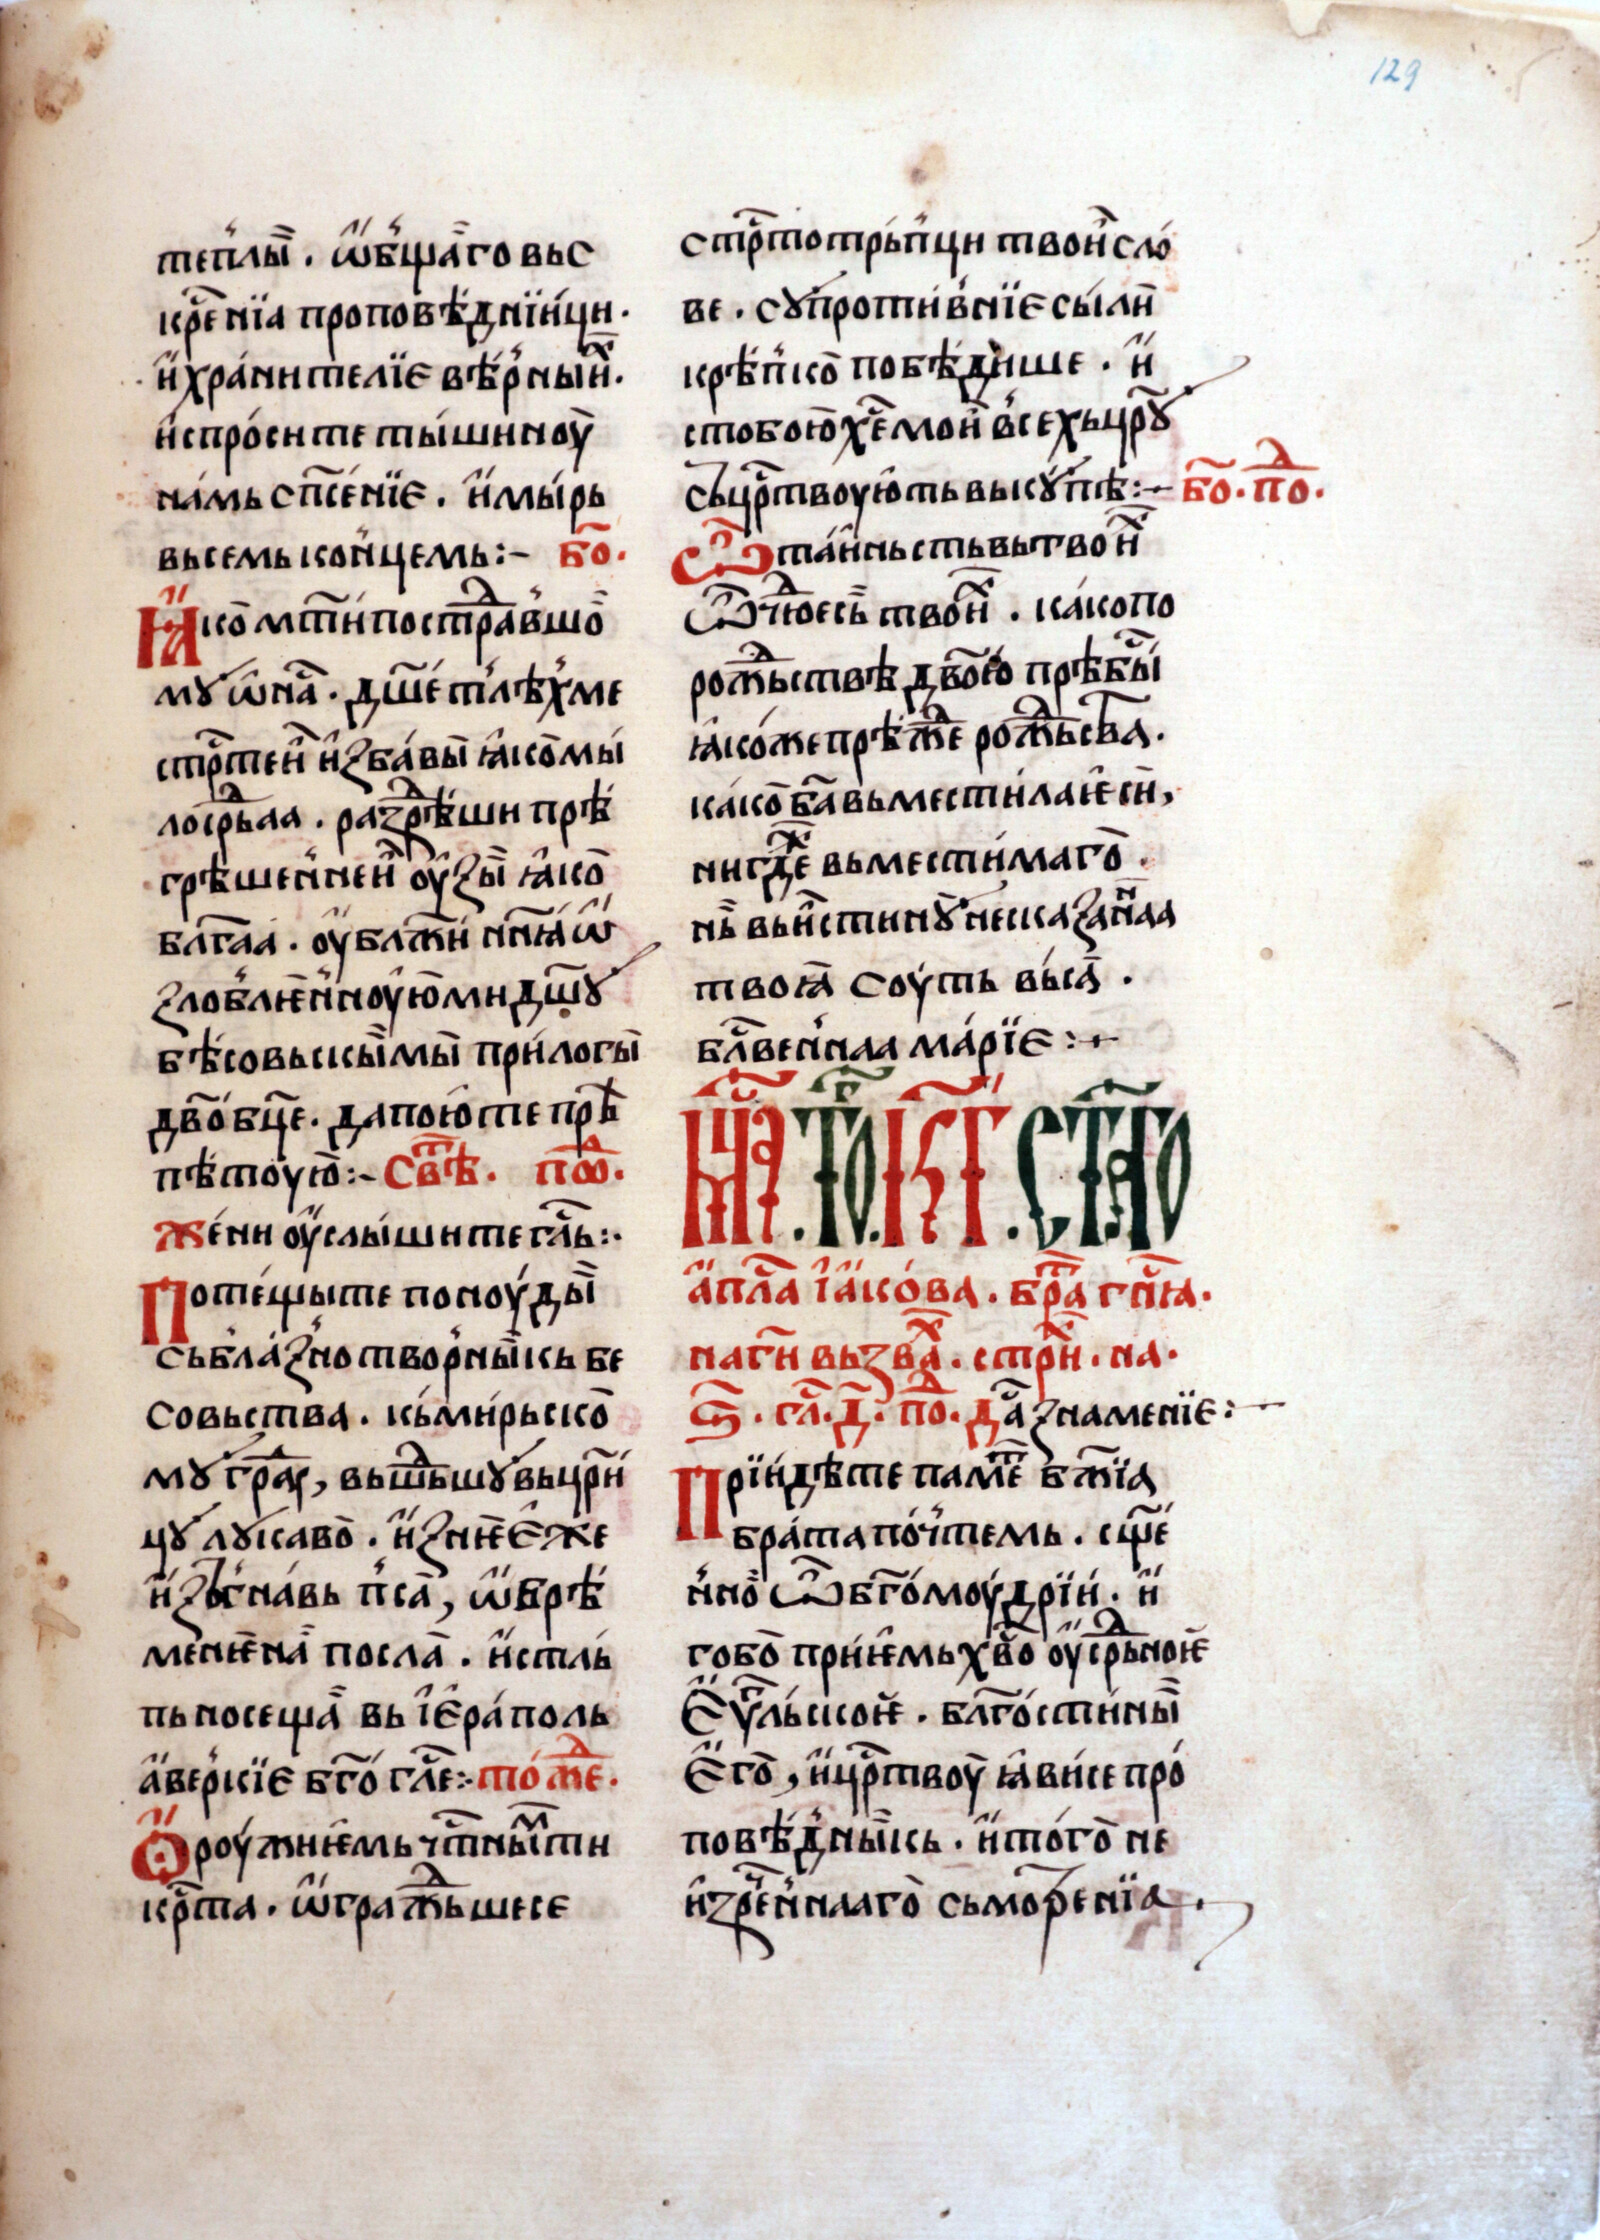 129
теплы̏ⷨ . ѡ҆́бщаⷢ҇го вьс
крⷭ҇енїа проповѣ́днїи́ци ·
и҆́ храни́телїе вѣ́рныиⷯ҇ ·
и҆спро́сите ты́шиноу
на́мь сп҃сенїе . и҆ мы́рь
вьсемь ко́нцемь :~ бо҃ ·
Ꙗ҆́ко мт҃и пострⷣа́вшо
мꙋ ѡ҆ нⷭ҇а . дш҃е тлѣ́хме
стрⷭ҇теи и҆зба́вы ꙗ҆ко мы
лосрⷣьаа . разрѣ́ши прѣ
грѣшен́неи оу҆зы ꙗ҆ко
бл҃гаа . оу҆блажи нн҃ꙗ ѡ҆
злоблѥн́ноую ми дш҃ꙋ
бѣ́совьскы́мы при́логы
дв҃о бц҃е . да пою те прѣ
пѣтоую :~ свⷮѣ . поⷣⷪ ·
жени оу҆слы́шите глⷭ҇ь :·
Поте́щыте по ноу́ды
сьбла́знотво́рныⷨ кь бе
совьства . кь ми́рьско
мꙋ граⷣꙋ , вьшⷣьшꙋ вь цр҃и
цꙋ лꙋкаво . и҆з нѥ е҆же
и҆зьгна́вь п́са , ѡ҆ врѣ́
менѥна посла . и҆ стль
пь носеща вь і҆ера́поль
а҆ве́ркїе бг҃о глⷭ҇е :· то́жⷣе ·
Ѻ҆роу́жиѥмь чⷭ҇тныⷨ ти
крⷭ҇та . ѡ҆гражⷣьшесе
стрⷭ҇тотрь́пци твои сло́
ве . сꙋпроти́внїе сы́лы
крѣ́пко побѣ́дише . и҆
с тобою хⷭ҇е мои в́сехь цр҃ꙋ
сьцрⷭ҇твоую́ть вь кꙋпѣ :~ бо҃ · поⷣ ·
Ѿ та́иньстьвь твоиⷯ
Ѿчⷣаюсь твоиⷯ . ка́ко по
рожⷣьствѣ дв҃ою прѣбыⷭ
ꙗ҆ко́же прѣ́жⷣе рожⷣьства .
ка́ко бг҃а вьмести́ла ѥ҆си ,
нигдⷤе вьмести́маго .
нь вьи́стинꙋ несказаⷩ҇наа
твоꙗ соу́ть вьса .
блⷭ҇веннаа ма́рїе :~
Мⷭ҇ца . тоⷢ . к҃г . стⷢ҇го
а҆́плⷭ҇а і҆а́кова . браⷮ гнⷭ҇ꙗ ·
на ги вьзваⷯ . стриⷯ · на ·
ѕ҃ . глⷭ . д҃ . поⷣ . даⷭ знаменїе :~
Прїидѣте памеⷮ бж҃їа
бра́та по́чтемь . сщ҃е
н́но ѿ бг҃омоу́дрїи . и҆
гобо приѥмь хв҃о оу҆срⷣьноѥ
е҆ѵⷢ҇ль́скоѥ . бл҃гости́ны
е҆го , и҆ црⷭ҇твоу ꙗ҆ви́се про́
повѣ́дныⷦ҇кь . и҆ то́го не
и҆зрⷭ҇еннааго сьмотренїа .